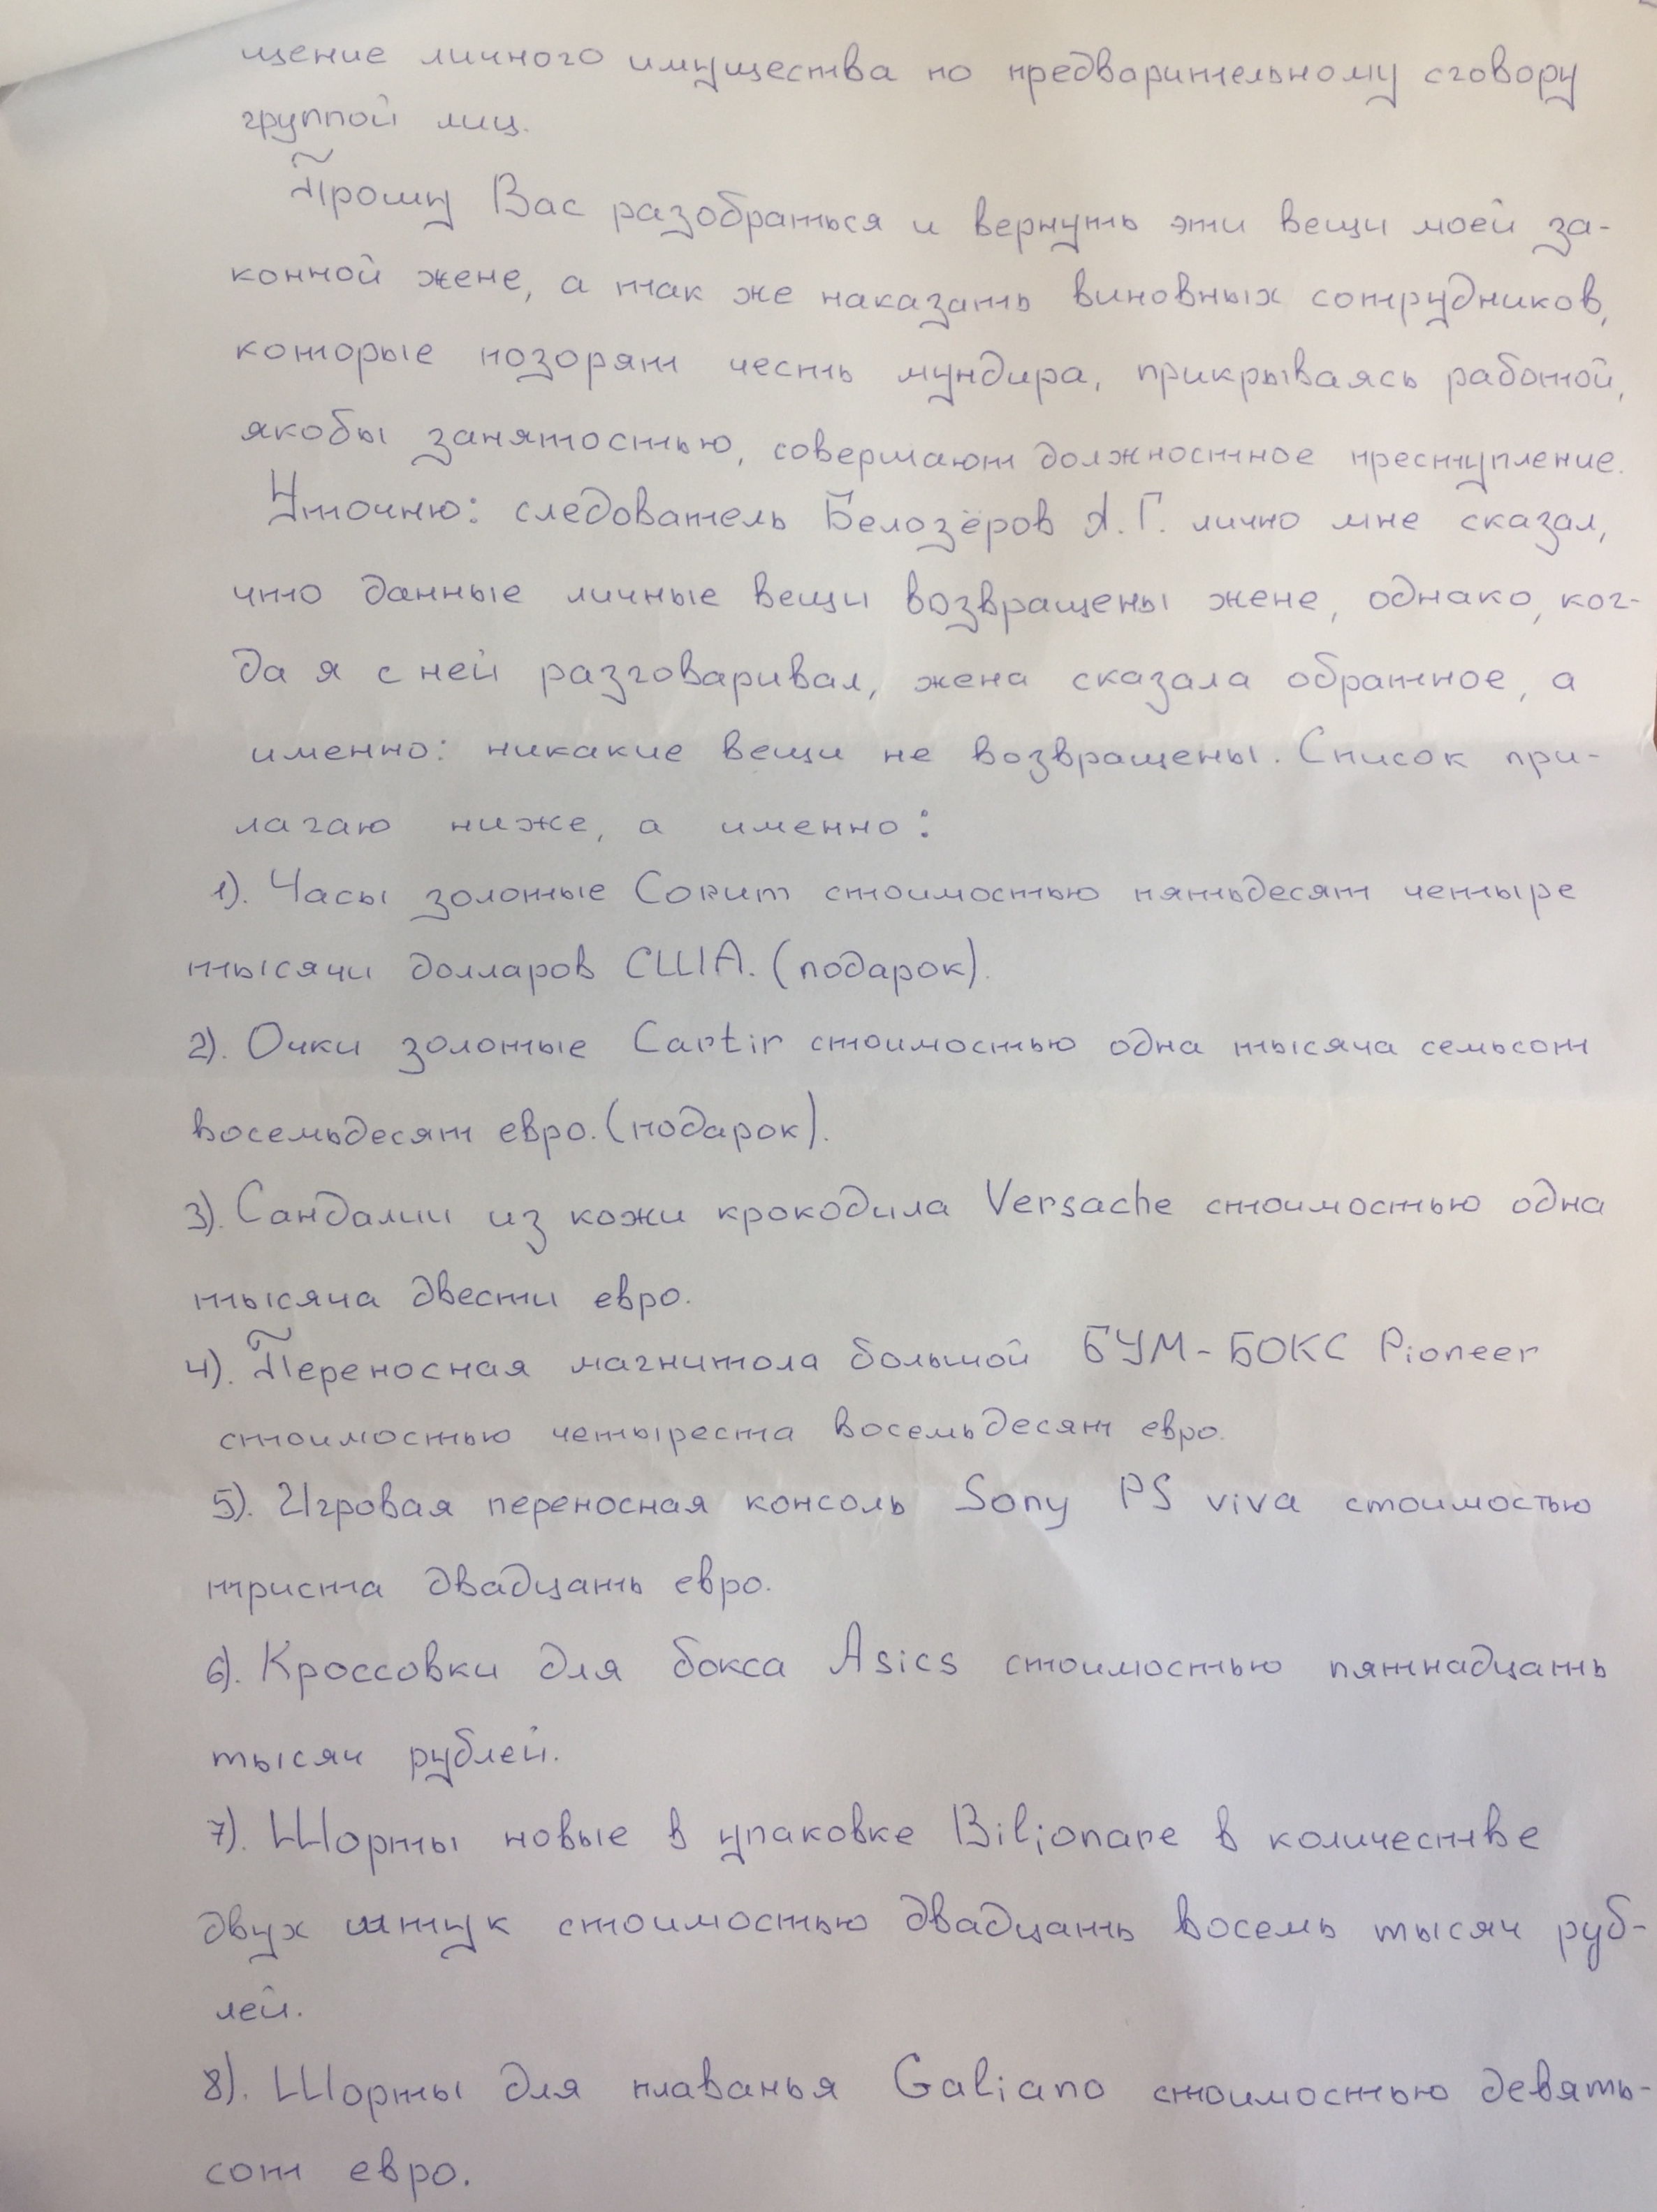 щение личного имущества по предварительному сговору
группой лиц.
Прошу Вас разобраться и вернуть эти вещи моей за-
конной жене, а так же наказать виновных сотрудников,
которые позорят честь мундира, прикрываясь работой,
якобы занятостью, совершают должностное преступление.
Уточню: следователь Белозёров А.Г. лично мне сказал,
что данные личные вещи возвращены жене, однако, ког-
да я с ней разговаривал, жена сказала обратное, а
именно: никакие вещи не возвращены. Список при-
лагаю ниже, а именно:
1). Часы золотые Corum стоимостью пятьдесят четыре
тысячи долларов США. (подарок).
2). Очки золотые Cartir стоимостью одна тысяча семьсот
восемьдесят евро. (подарок).
3). Сандалии из кожи крокодила Versache стоимостью одна
тысяча двести евро.
4). Переносная магнитола большой БУМ-БОКС Pioneer
стоимостью четыреста восемьдесят евро.
5). Игровая переносная консоль Sony PS viva стоимостью
триста двадцать евро.
6). Кроссовки для бокса Asics стоимостью пятнадцать
тысяч рублей.
7). Шорты новые в упаковке Bilionare в количестве
двух штук стоимостью двадцать восемь тысяч руб-
лей.
8). Шорты для плаванья Galiano стоимостью девять-
сот евро.